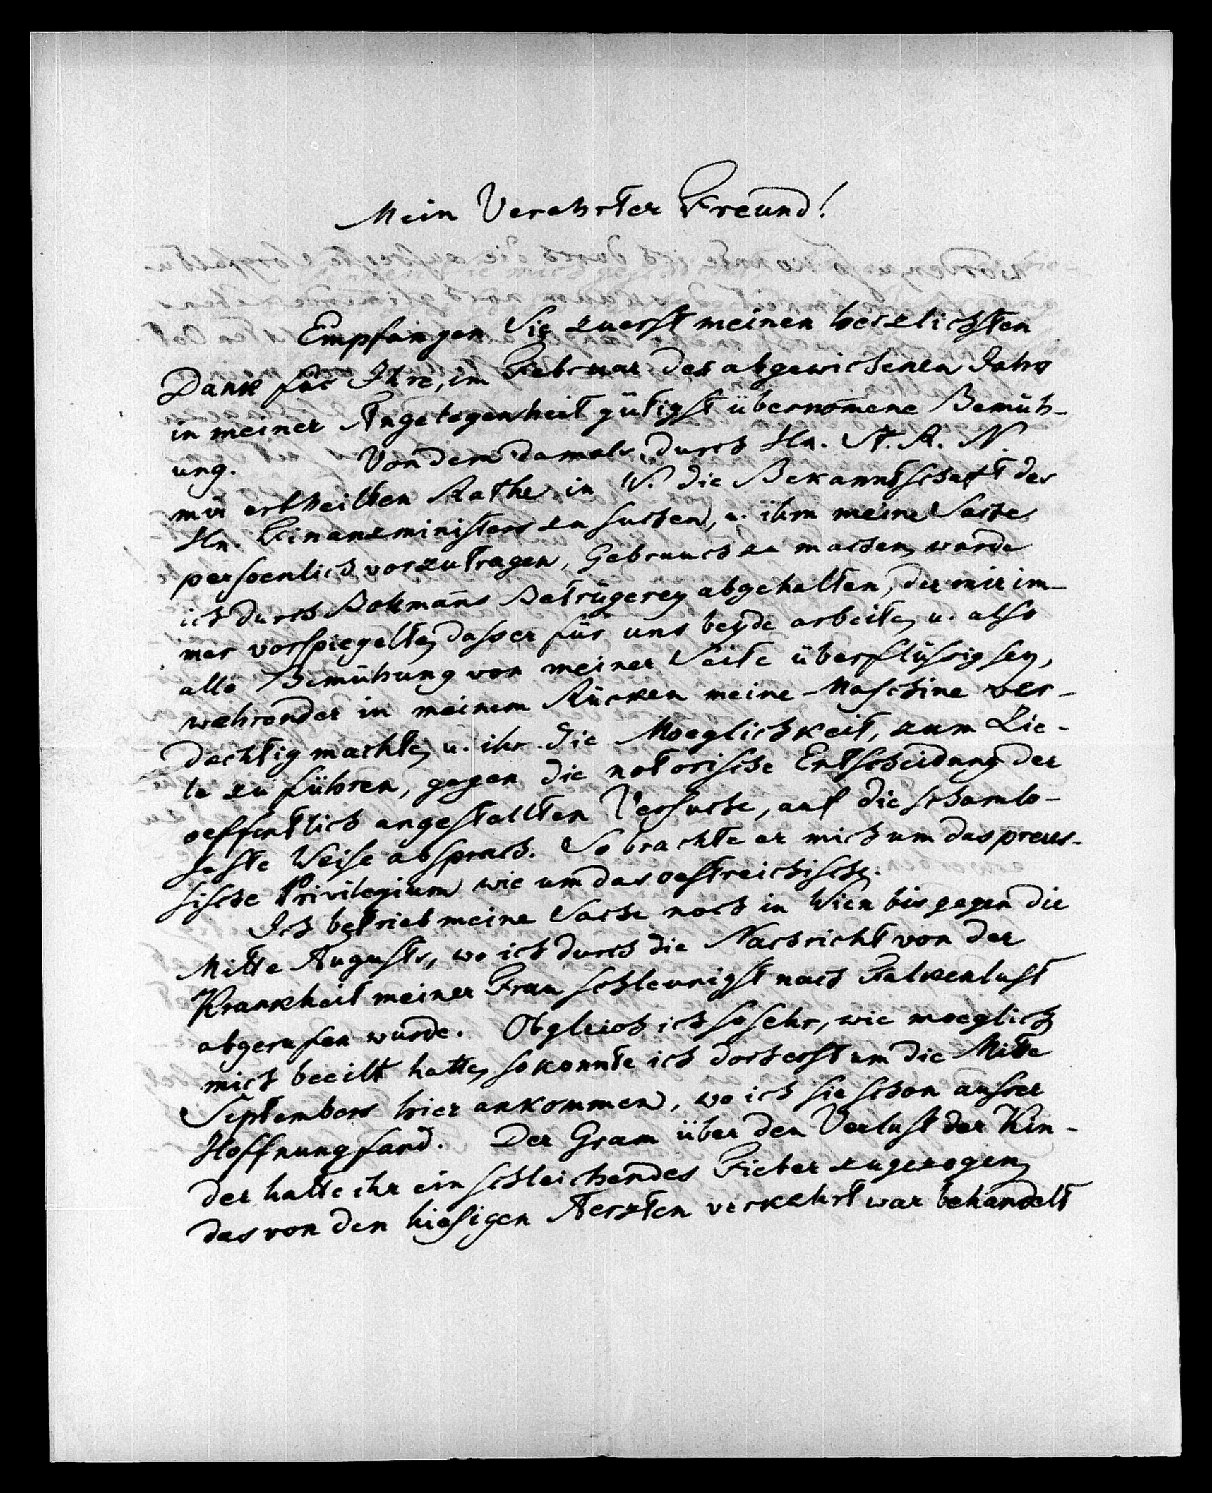 Mein Verehrter Freund!
Empfangen Sie zuerst meinen herzlichsten
Dank für Ihre, im Februar des abgewichenen Jahrs
in meiner Angelegenheit gütigst übernom̄ene Bemüh-
ung. Von dem damals, durch Hn. St. R. N.
mir ertheilten Rathe in W. die Bekanntschaft des
Hn. Finanzministers zu suchen, u. ihm meine Sache
persoenlich vorzutragen, Gebrauch zu machen, wurde
ich durch Betrügerey abgehalten, der mir im-
mer vorspiegelte, dass er für uns beyde arbeite, u. also
alle Bemühung von meiner Seite überflüssig sey,
waehrend er in meinem Rücken meine Maschine ver-
dachtig machte, u. ihr die Moeglichkeit, zum Zie-
le zu führen, gegen die notorische Entscheidung der
oeffentlich angestellten Versuche, auf die schamlo-
seste Weise absprach. So brachte er mich um das preus-
sische Privilegium wie um das oestreichische.
Ich betrieb meine Sache noch in Wien bis gegen die
Mitte Augusts, wo ich durch die Nachricht von der
Krankheit meiner Frau schleunigst nach Falkenlust
abgerufen wurde. Obgleich ich so sehr, wie moeglich
mich beeilt hatte, so konnte ich doch erst um die Mitte
Septembers hier ankommen, wo ich sie schon ausser
Hoffnung fand. Der Gram über den Verlust der Kin-
der hatte ihr ein schleichendes Fieber zugezogen,
das von den hiesigen Aerzten verkehrt war behandelt